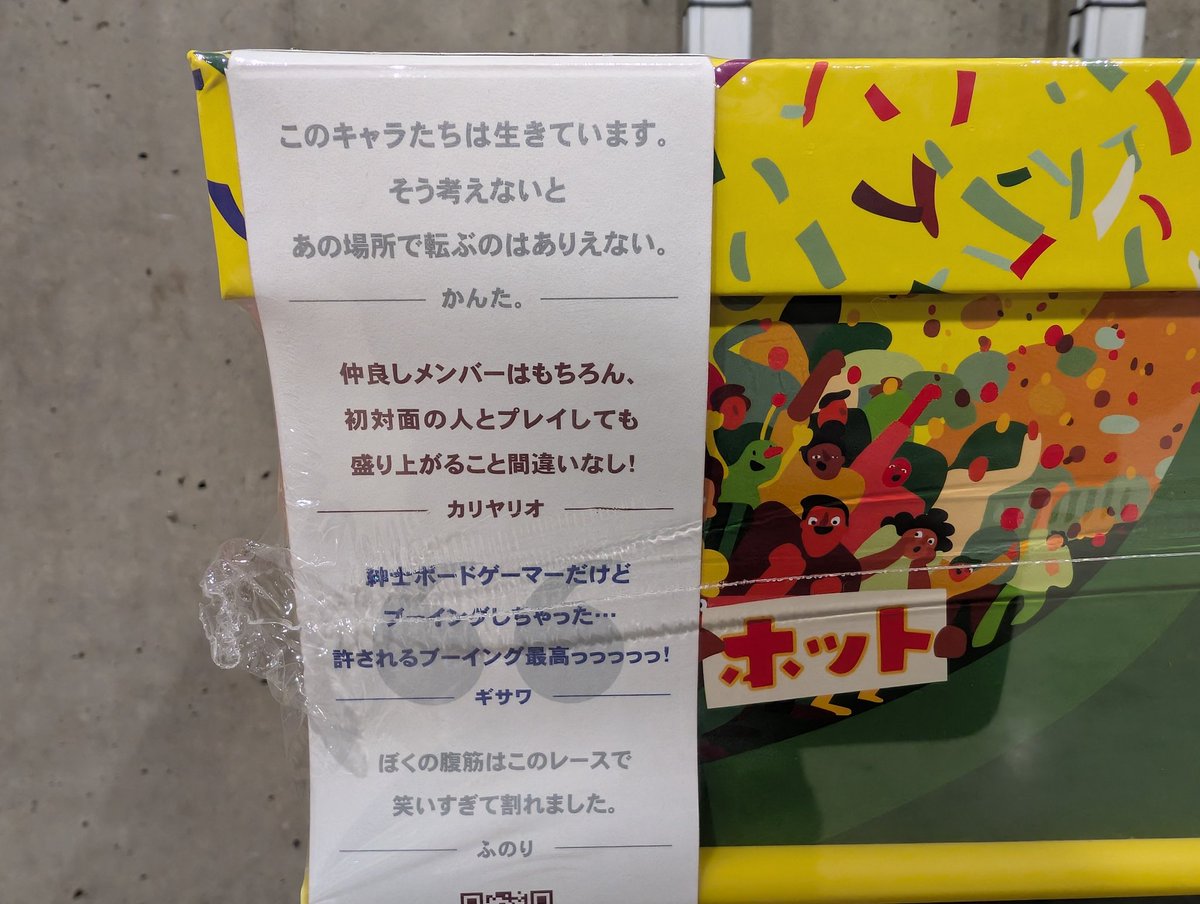 このキャラたちは生きています。
そう考えないと
あの場所で転ぶのはありえない。
かんた。
仲良しメンバーはもちろん、
初対面の人とプレイしても
盛り上がること間違いなし!
カリヤリオ
紳士ボードゲーマーだけど
ブーイングしちゃった…
許されるブーイング最高っっっっっ!
ギサワ
ぼくの腹筋はこのレースで
笑いすぎて割れました。
ふのり
ホット